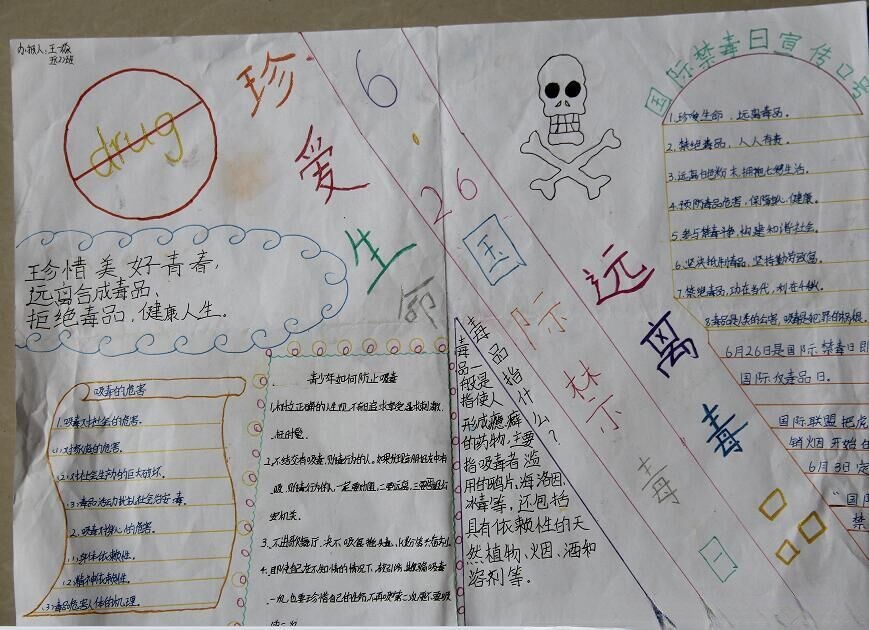 办报人:王
drug
珍爱生命
远离毒
6.26国际禁毒日
珍惜美好青春,
远离合成毒品、
拒绝毒品,健康人生。
吸毒的危害
1.吸毒对社会的危害。
(1)对家庭的危害。
(2)对社会生产力的巨大破坏。
(3)毒品活动扰乱社会治安
2.吸毒对身心的危害。
(1)身体依赖性。
(2)精神依赖性。
(3)毒品危害人体的机理。
青少年如何防止吸毒
1.树立正确的人生观,不盲目追求享受,寻求刺激,
赶时髦。
2.不结交有吸毒、贩毒行为的人。如果发现亲朋好友中有
吸、贩毒行为的人,一定要劝阻,二要远离,三要报告公
安机关。
3.不进歌舞厅,决不吸食
4.即使自己在不知情的情况下,被引诱、欺骗吸毒
一次,也要珍惜自己的生命,不再吸第二次,更不要吸
第三次。
毒品指什么?
毒品一般是
指使人
形成瘾癖
的药物,主要
指吸毒者滥
用的鸦片、海洛因、
冰毒等,还包括
具有依赖性的天
然植物、烟、酒和
溶剂等。
国际禁毒日宣传口号
1.珍爱生命,远离毒品。
2.禁绝毒品,人人有责。
3.远离白色粉末,拥抱七彩生活。
4.预防毒品危害,保障身心健康。
5.参与禁毒斗争,构建和谐社会。
6.坚决抵制毒品,坚持勤劳致富。
7.禁绝毒品,功在当代,利在千秋。
8.毒品是人类的公害,吸毒是犯罪的根源。
6月26日是国际禁毒日即
国际反毒品日。
国际联盟把虎
销烟开始在
6月3日定
“国际
禁